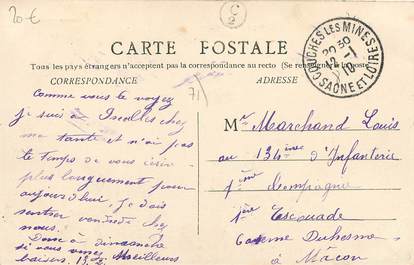 20 €
C
2
CARTE POSTALE
Tous les pays étrangers n'acceptent pas la correspondance au recto (Se renseigner à la
CORRESPONDANCE
ADRESSE
71
COUCHES LES MINES
20 30
12 -1
10
SAÔNE ET LOIRE
Comme vous le voyez
je suis à chez
ma tante et n'ai pas
le temps de vous écrire
plus longuement pour
aujourd'hui. Je dois
rentrer vendredi chez
nous.
Donc à dimanche
si vous venez Meilleurs
baisers.
Mr Marchand Louis
au 134ème d'Infanterie
1ère Compagnie
1ère Escouade
Caserne Duhesme
à Mâcon